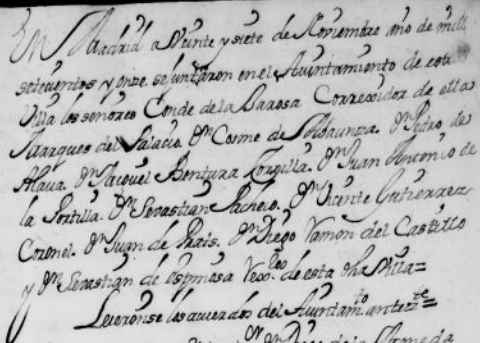 En Madrid a Veinte y siete de Noviembre año de mill
setecientos y onze. se Juntaron en el Ayuntamiento de esta
Villa los señores Conde de la Jarosa Correxidor de ella
Marques del Palacio. Dn Cosme de Dn Pedro de
Alava. Dn Bentura Zorrilla. Dn Juan Antonio de
la Portilla. Dn Sevastian Pacheco. Dn Vicente Gutierrez
Coronel. Dn Juan de Prais. Dn Diego Ramon del Castillo
y Dn Sevastian de espinosa Rexres de esta dha Villa=
Leyeronse los acuerdos del Ayuntamto antezte=
Dn Diego de la